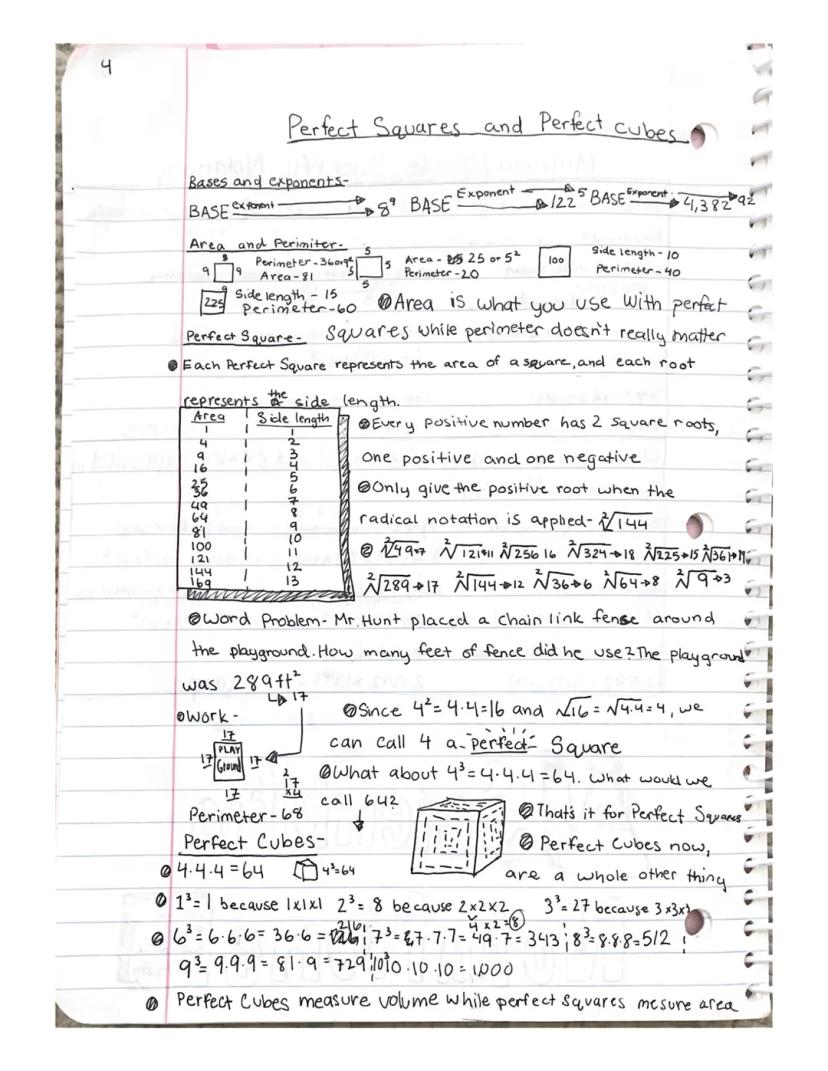 4
Perfect Squares and Perfect cubes
Bases and exponents-
BASE Exponent 8⁹ BASE Exponent 122⁵ BASE Exponent 4,382⁹²
Area and Perimiter-
9 9 9 Perimeter - 36 or 9² Area - 81
5 5 5 5 Area - 25 or 5² Perimeter - 20
100 Side length - 10 Perimeter - 40
225 Side length - 15 Perimeter - 60
Area is what you use with perfect
Squares while perimeter doesn't really matter
Perfect Square-
Each Perfect Square represents the area of a square, and each root
represents the side length.
Area Side length
1 1
4 2
9 3
16 4
25 5
36 6
49 7
64 8
81 9
100 10
121 11
144 12
169 13
Every positive number has 2 square roots,
one positive and one negative
Only give the positive root when the
radical notation is applied- ²√144
²√49→7 ²√121→11 ²√256 16 ²√324→18 ²√225→15 ²√361→19
²√289→17 ²√144→12 ²√36→6 ²√64→8 ²√9→3
Word Problem- Mr. Hunt placed a chain link fense around
the playground. How many feet of fence did he use? The playground
was 289ft²
↳ 17
Work -
17
17 PLAY Ground 17
17
2
17
x4
Perimeter - 68
Since 4²= 4·4=16 and √16 = √4·4 = 4, we
can call 4 a perfect Square
What about 4³= 4·4·4 = 64. What would we
call 64?
That's it for Perfect Squares
Perfect Cubes now,
are a whole other thing
Perfect Cubes-
4·4·4 = 64 4³=64
1³= 1 because 1x1x1 2³= 8 because 2x2x2 3³= 27 because 3x3x3
4x2=8
6³= 6·6·6= 36·6 = 216 7³= 7·7·7= 49·7= 343 8³= 8·8·8=512
9³= 9·9·9 = 81·9 = 729 10³ 10·10·10 = 1,000
Perfect Cubes measure volume while perfect squares mesure area